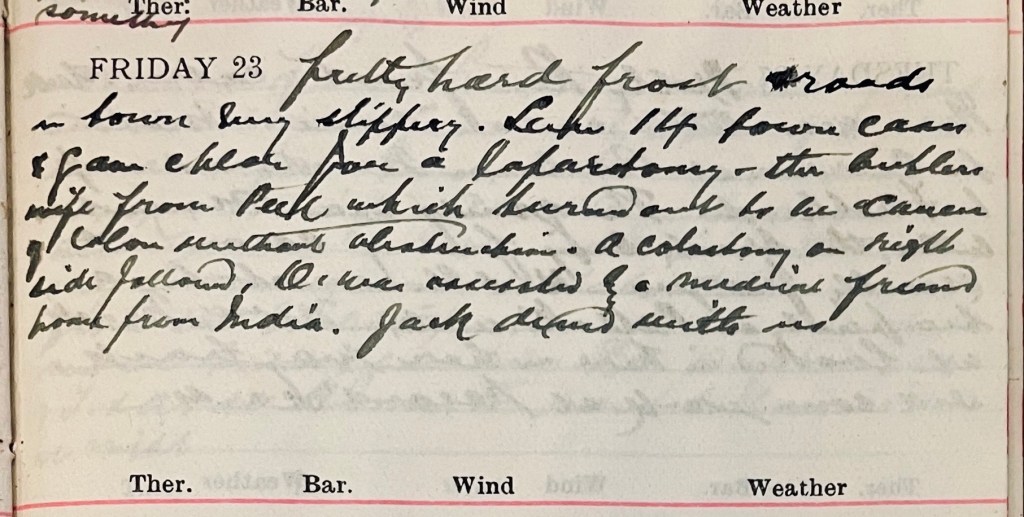 something
Ther. Bar. Wind Weather
FRIDAY 23 pretty hard frost & roads
in town very slippery. Seen 14 town cases
& gave chlor for a laparotomy - the butlers
wife from Peel which turned out to be cancer
of colon without obstruction. A colostomy on right
side followed. O. was assisted by a medical friend
home from India. Jack dined with us
Ther. Bar. Wind Weather